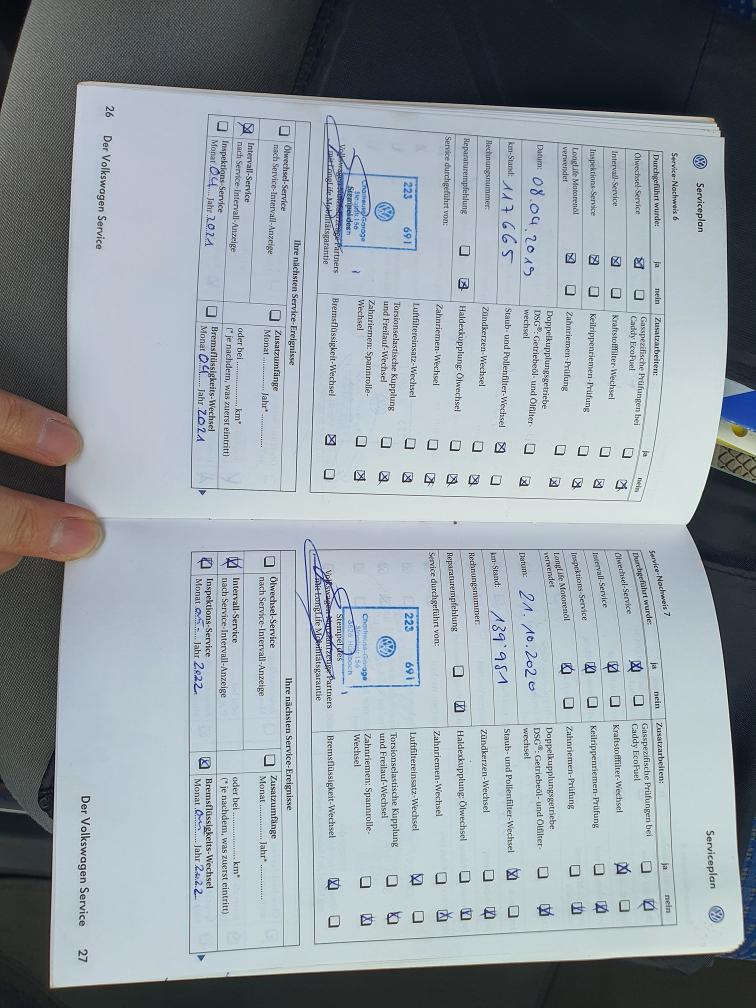 Serviceplan
Service-Nachweis 6
Durchgeführt wurde: ja nein
Ölwechsel-Service
Intervall-Service
Inspektions-Service
LongLife Motorenöl
verwendet
Datum: 08.04.2019
km-Stand: 117665
Rechnungsnummer:
Reparaturempfehlung
Service durchgeführt von:
223 691
Volkswagen Partners
mit LongLife Mobilitätsgarantie
Zusatzarbeiten: ja nein
Gasspezifische Prüfungen bei
Caddy EcoFuel
Kraftstofffilter-Wechsel
Keilrippenriemen-Prüfung
Zahnriemen-Prüfung
Doppelkupplungsgetriebe
DSG®: Getriebeöl- und Ölfilter-
wechsel
Staub- und Pollenfilter-Wechsel
Zündkerzen-Wechsel
Haldexkupplung: Ölwechsel
Zahnriemen-Wechsel
Luftfiltereinsatz-Wechsel
Torsionselastische Kupplung
und Freilauf-Wechsel
Zahnriemen: Spannrolle-
Wechsel
Bremsflüssigkeit-Wechsel
Ihre nächsten Service-Ereignisse
Ölwechsel-Service
nach Service-Intervall-Anzeige
Intervall-Service
nach Service-Intervall-Anzeige
Inspektions-Service
Monat 04 Jahr 2021
Zusatzumfänge
Monat Jahr*
oder bei km*
(* je nachdem, was zuerst eintritt)
Bremsflüssigkeits-Wechsel
Monat 04 Jahr 2021
26 Der Volkswagen Service
Serviceplan
Service-Nachweis 7
Durchgeführt wurde: ja nein
Ölwechsel-Service
Intervall-Service
Inspektions-Service
LongLife Motorenöl
verwendet
Datum: 21.10.2020
km-Stand: 139'981
Rechnungsnummer:
Reparaturempfehlung
Service durchgeführt von:
223 691
Stempel des
Partners
mit LongLife Mobilitätsgarantie
Zusatzarbeiten: ja nein
Gasspezifische Prüfungen bei
Caddy EcoFuel
Kraftstofffilter-Wechsel
Keilrippenriemen-Prüfung
Zahnriemen-Prüfung
Doppelkupplungsgetriebe
DSG®: Getriebeöl- und Ölfilter-
wechsel
Staub- und Pollenfilter-Wechsel
Zündkerzen-Wechsel
Haldexkupplung: Ölwechsel
Zahnriemen-Wechsel
Luftfiltereinsatz-Wechsel
Torsionselastische Kupplung
und Freilauf-Wechsel
Zahnriemen: Spannrolle-
Wechsel
Bremsflüssigkeit-Wechsel
Ihre nächsten Service-Ereignisse
Ölwechsel-Service
nach Service-Intervall-Anzeige
Intervall-Service
nach Service-Intervall-Anzeige
Inspektions-Service
Monat Jahr 2022
Zusatzumfänge
Monat Jahr*
oder bei km*
(* je nachdem, was zuerst eintritt)
Bremsflüssigkeits-Wechsel
Monat Jahr 2022
Der Volkswagen Service 27